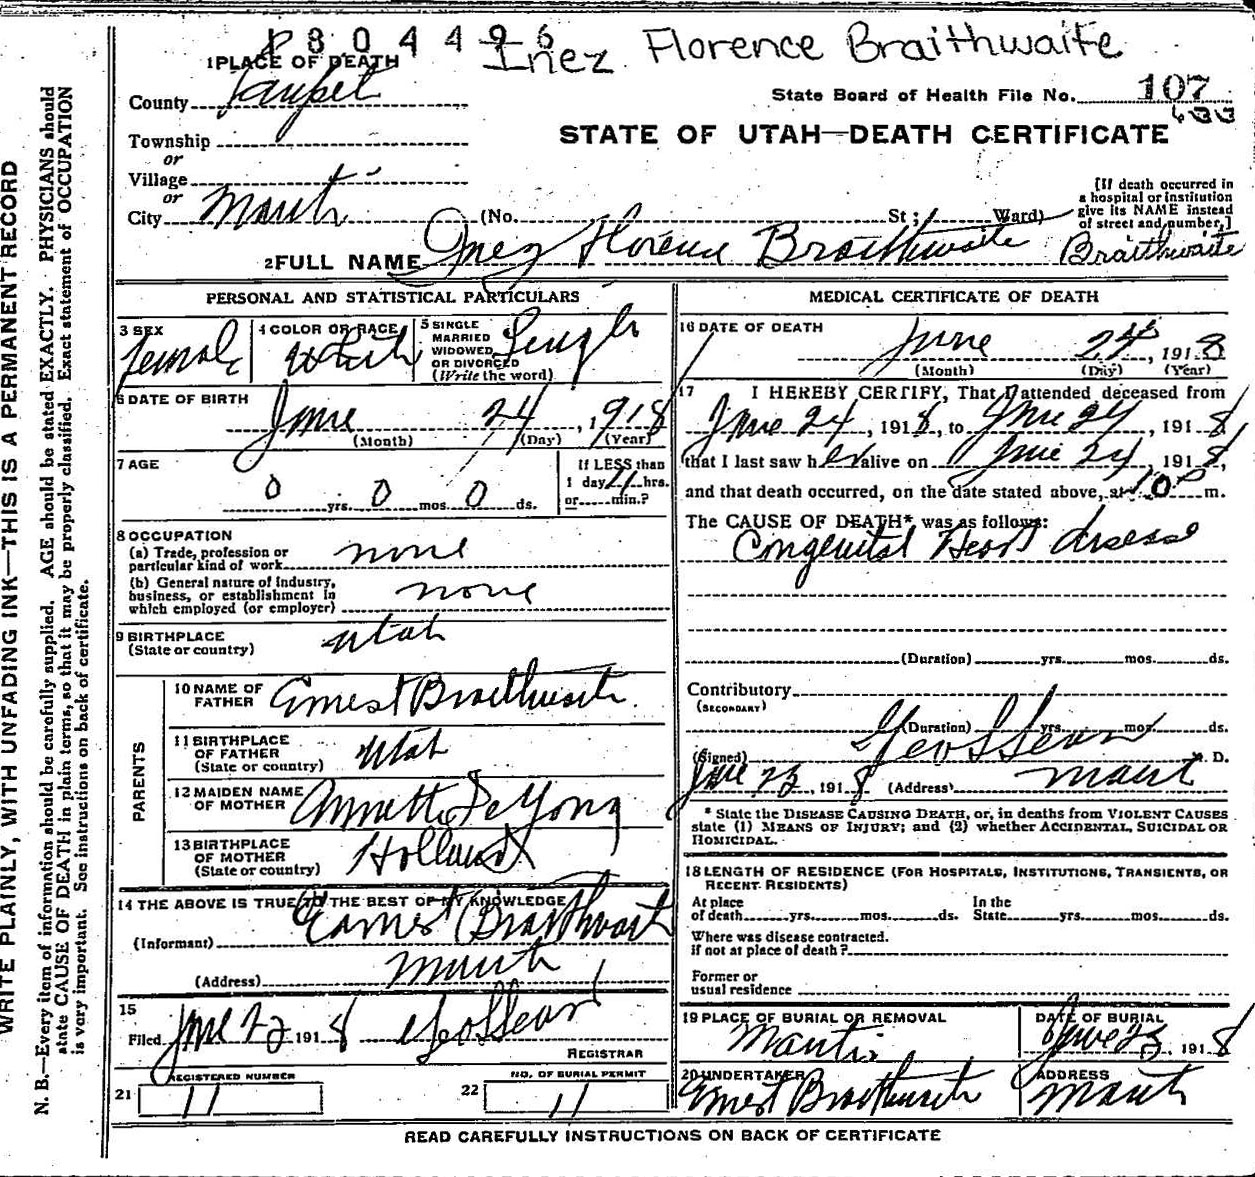 1804496
Inez Florence Braithwaite
1 PLACE OF DEATH
County
State Board of Health File No. 107
Township
or
Village
or
City Manti
STATE OF UTAH—DEATH CERTIFICATE
(No. St; Ward)
[If death occurred in
a hospital or institution
give its NAME instead
of street and number.]
2 FULL NAME Inez Florence Braithwaite
Braithwaite
PERSONAL AND STATISTICAL PARTICULARS
3 SEX
Female
4 COLOR OR RACE
White
5 SINGLE
MARRIED
WIDOWED
OR DIVORCED
(Write the word)
Single
6 DATE OF BIRTH
June 24, 1918
(Month) (Day) (Year)
7 AGE
0 yrs. 0 mos. 0 ds.
If LESS than
1 day hrs.
or min.?
8 OCCUPATION
(a) Trade, profession or
particular kind of work none
(b) General nature of industry,
business, or establishment in
which employed (or employer) none
9 BIRTHPLACE
(State or country)
Utah
PARENTS
10 NAME OF
FATHER
Ernest Braithwaite
11 BIRTHPLACE
OF FATHER
(State or country)
Utah
12 MAIDEN NAME
OF MOTHER
Annette DeYong
13 BIRTHPLACE
OF MOTHER
(State or country)
Holland
14 THE ABOVE IS TRUE TO THE BEST OF MY KNOWLEDGE
(Informant) Earnest Braithwaite
(Address) Manti
15
Filed June 1918
REGISTRAR
REGISTERED NUMBER
21 11
NO. OF BURIAL PERMIT
22 11
MEDICAL CERTIFICATE OF DEATH
16 DATE OF DEATH
June 24, 1918
(Month) (Day) (Year)
17 I HEREBY CERTIFY, That I attended deceased from
June 24, 1918, to June 24, 1918
that I last saw her alive on June 24, 1918,
and that death occurred, on the date stated above, at 10 P m.
The CAUSE OF DEATH* was as follows:
Congenital Heart disease
(Duration) yrs. mos. ds.
Contributory
(SECONDARY)
(Duration) yrs. mos. ds.
(Signed) M. D.
June 1918 (Address) Manti
* State the DISEASE CAUSING DEATH, or, in deaths from VIOLENT CAUSES
state (1) MEANS OF INJURY; and (2) whether ACCIDENTAL, SUICIDAL OR
HOMICIDAL.
18 LENGTH OF RESIDENCE (FOR HOSPITALS, INSTITUTIONS, TRANSIENTS, OR
RECENT RESIDENTS)
At place
of death yrs. mos. ds.
In the
State yrs. mos. ds.
Where was disease contracted.
if not at place of death?
Former or
usual residence
19 PLACE OF BURIAL OR REMOVAL
Manti
DATE OF BURIAL
June 1918
20 UNDERTAKER
Ernest Braithwaite
ADDRESS
Manti
READ CAREFULLY INSTRUCTIONS ON BACK OF CERTIFICATE
WRITE PLAINLY, WITH UNFADING INK—THIS IS A PERMANENT RECORD
N. B.—Every item of information should be carefully supplied. AGE should be stated EXACTLY. PHYSICIANS should
state CAUSE OF DEATH in plain terms, so that it may be properly classified. Exact statement of OCCUPATION
is very important. See instructions on back of certificate.